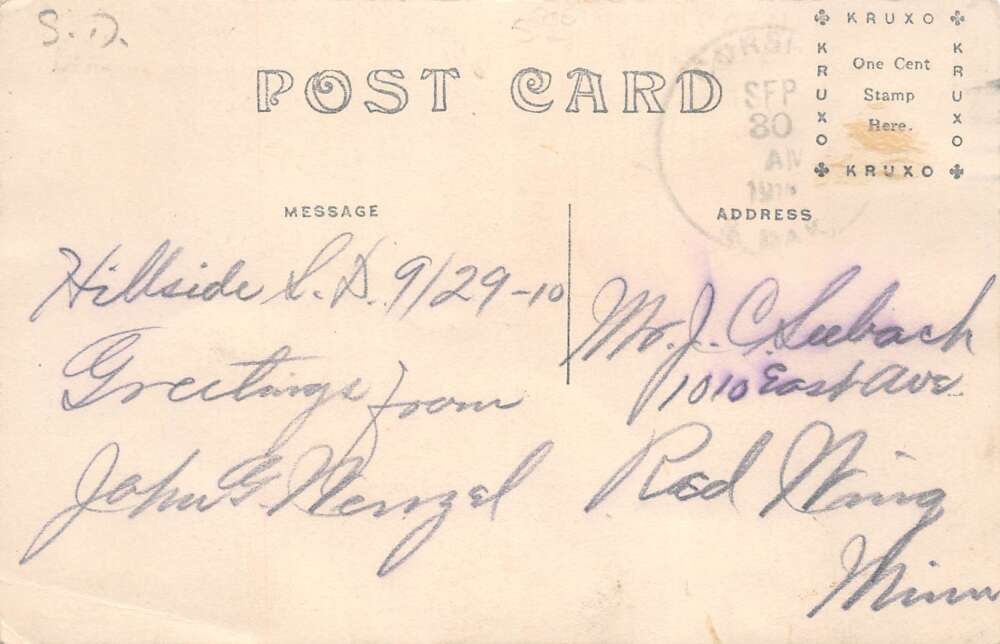 S.D.
POST CARD
KRUXO
KRUXO
One Cent
Stamp
Here.
KRUXO
KRUXO
SEP
30
AM
MESSAGE
ADDRESS
Hillside S.D. 9/29-10
Greetings from
John G. Wenzel
Mr. J. C. Seebach
1010 East Ave
Red Wing
Minn